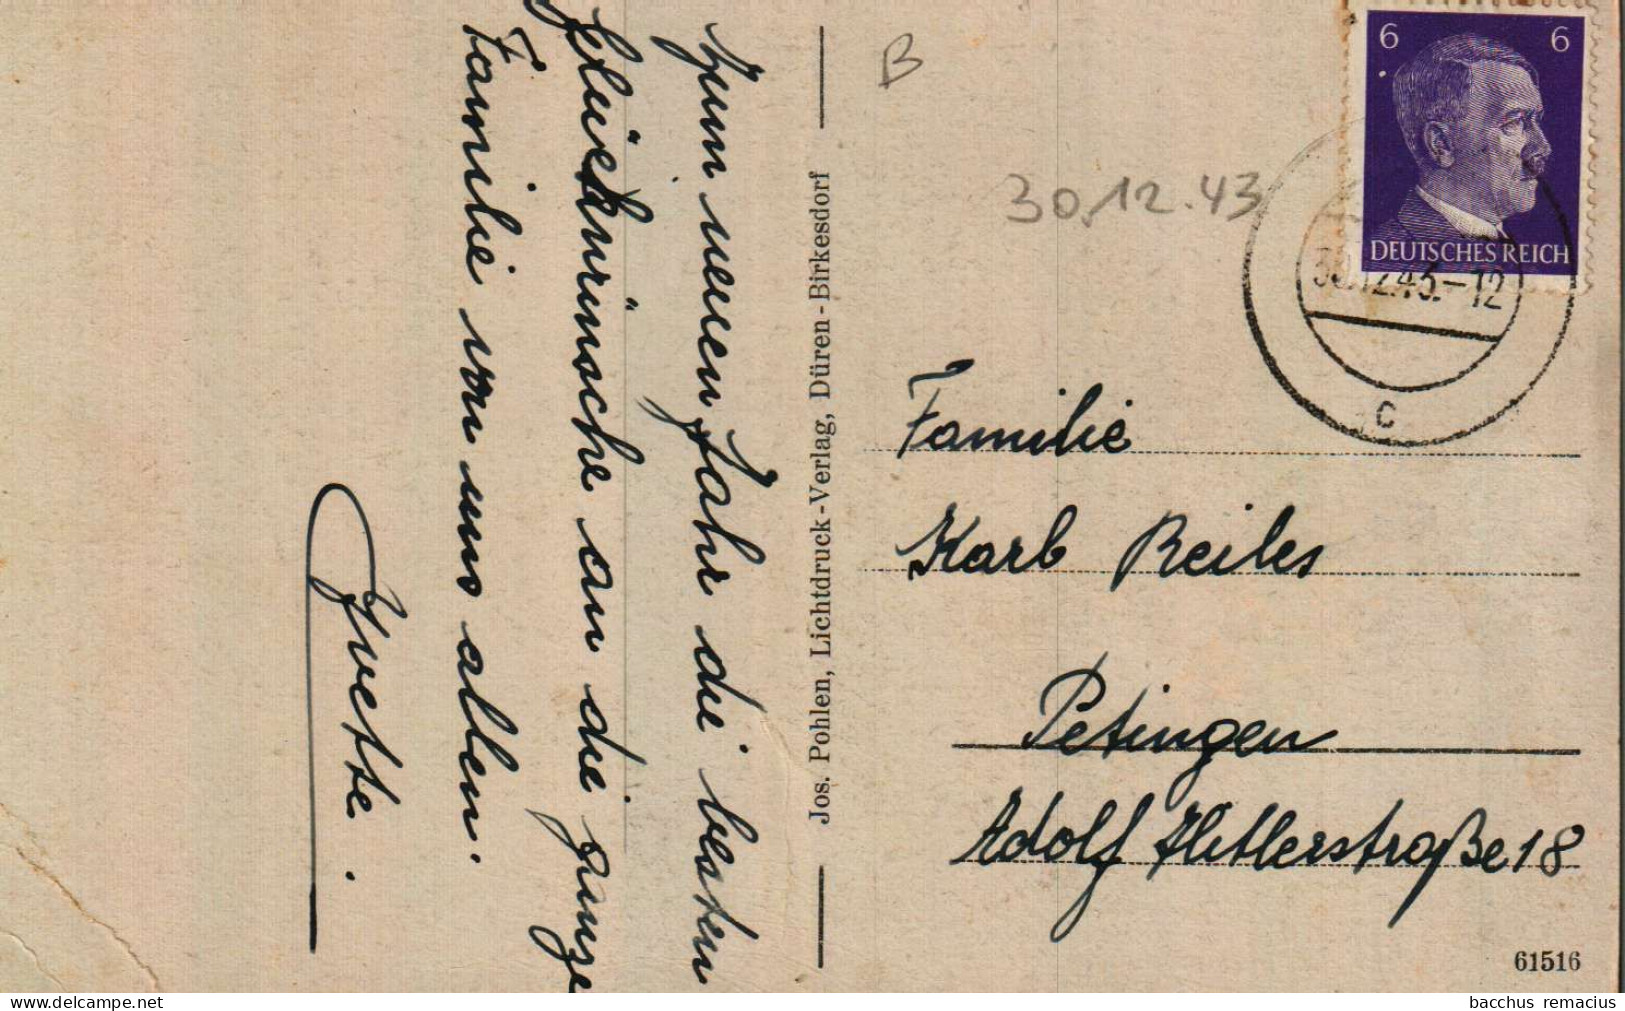 Zum neuen Jahr die besten
Glückwünsche an die ganze
Familie von uns allen.
Yvette.
Jos. Pohlen, Lichtdruck-Verlag, Düren-Birkesdorf
B
30.12.43
6 6
DEUTSCHES REICH
30.12.43.-12
c
Familie
Karl Reiles
Petingen
Adolf Hitlerstraße 18
61516
bacchus remacius